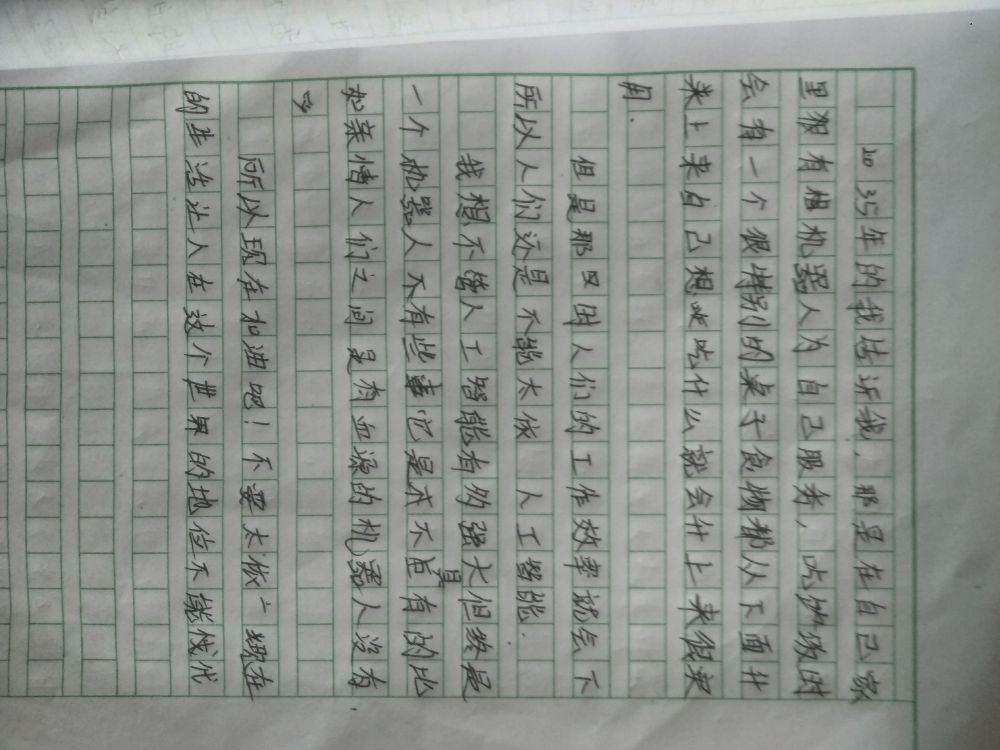 35年的我告诉我，那是在自己家
里很有机器人为自己服务，吃饭的时
会有一个很特别的桌子食物都从下面升
来上来自己想吃什么就会升上来很实
用.
但是那又因人们的工作效率就会下
所以人们还是不能太依 人工智能.
我想不管人工智能有多强大但终是
一个机器人不有些事它是不不具有的比
如亲情人们之间是有血源的机器人没有
所以现在加油吧！不要太依 现在
的生活让人在这个世界的地位不能伐代